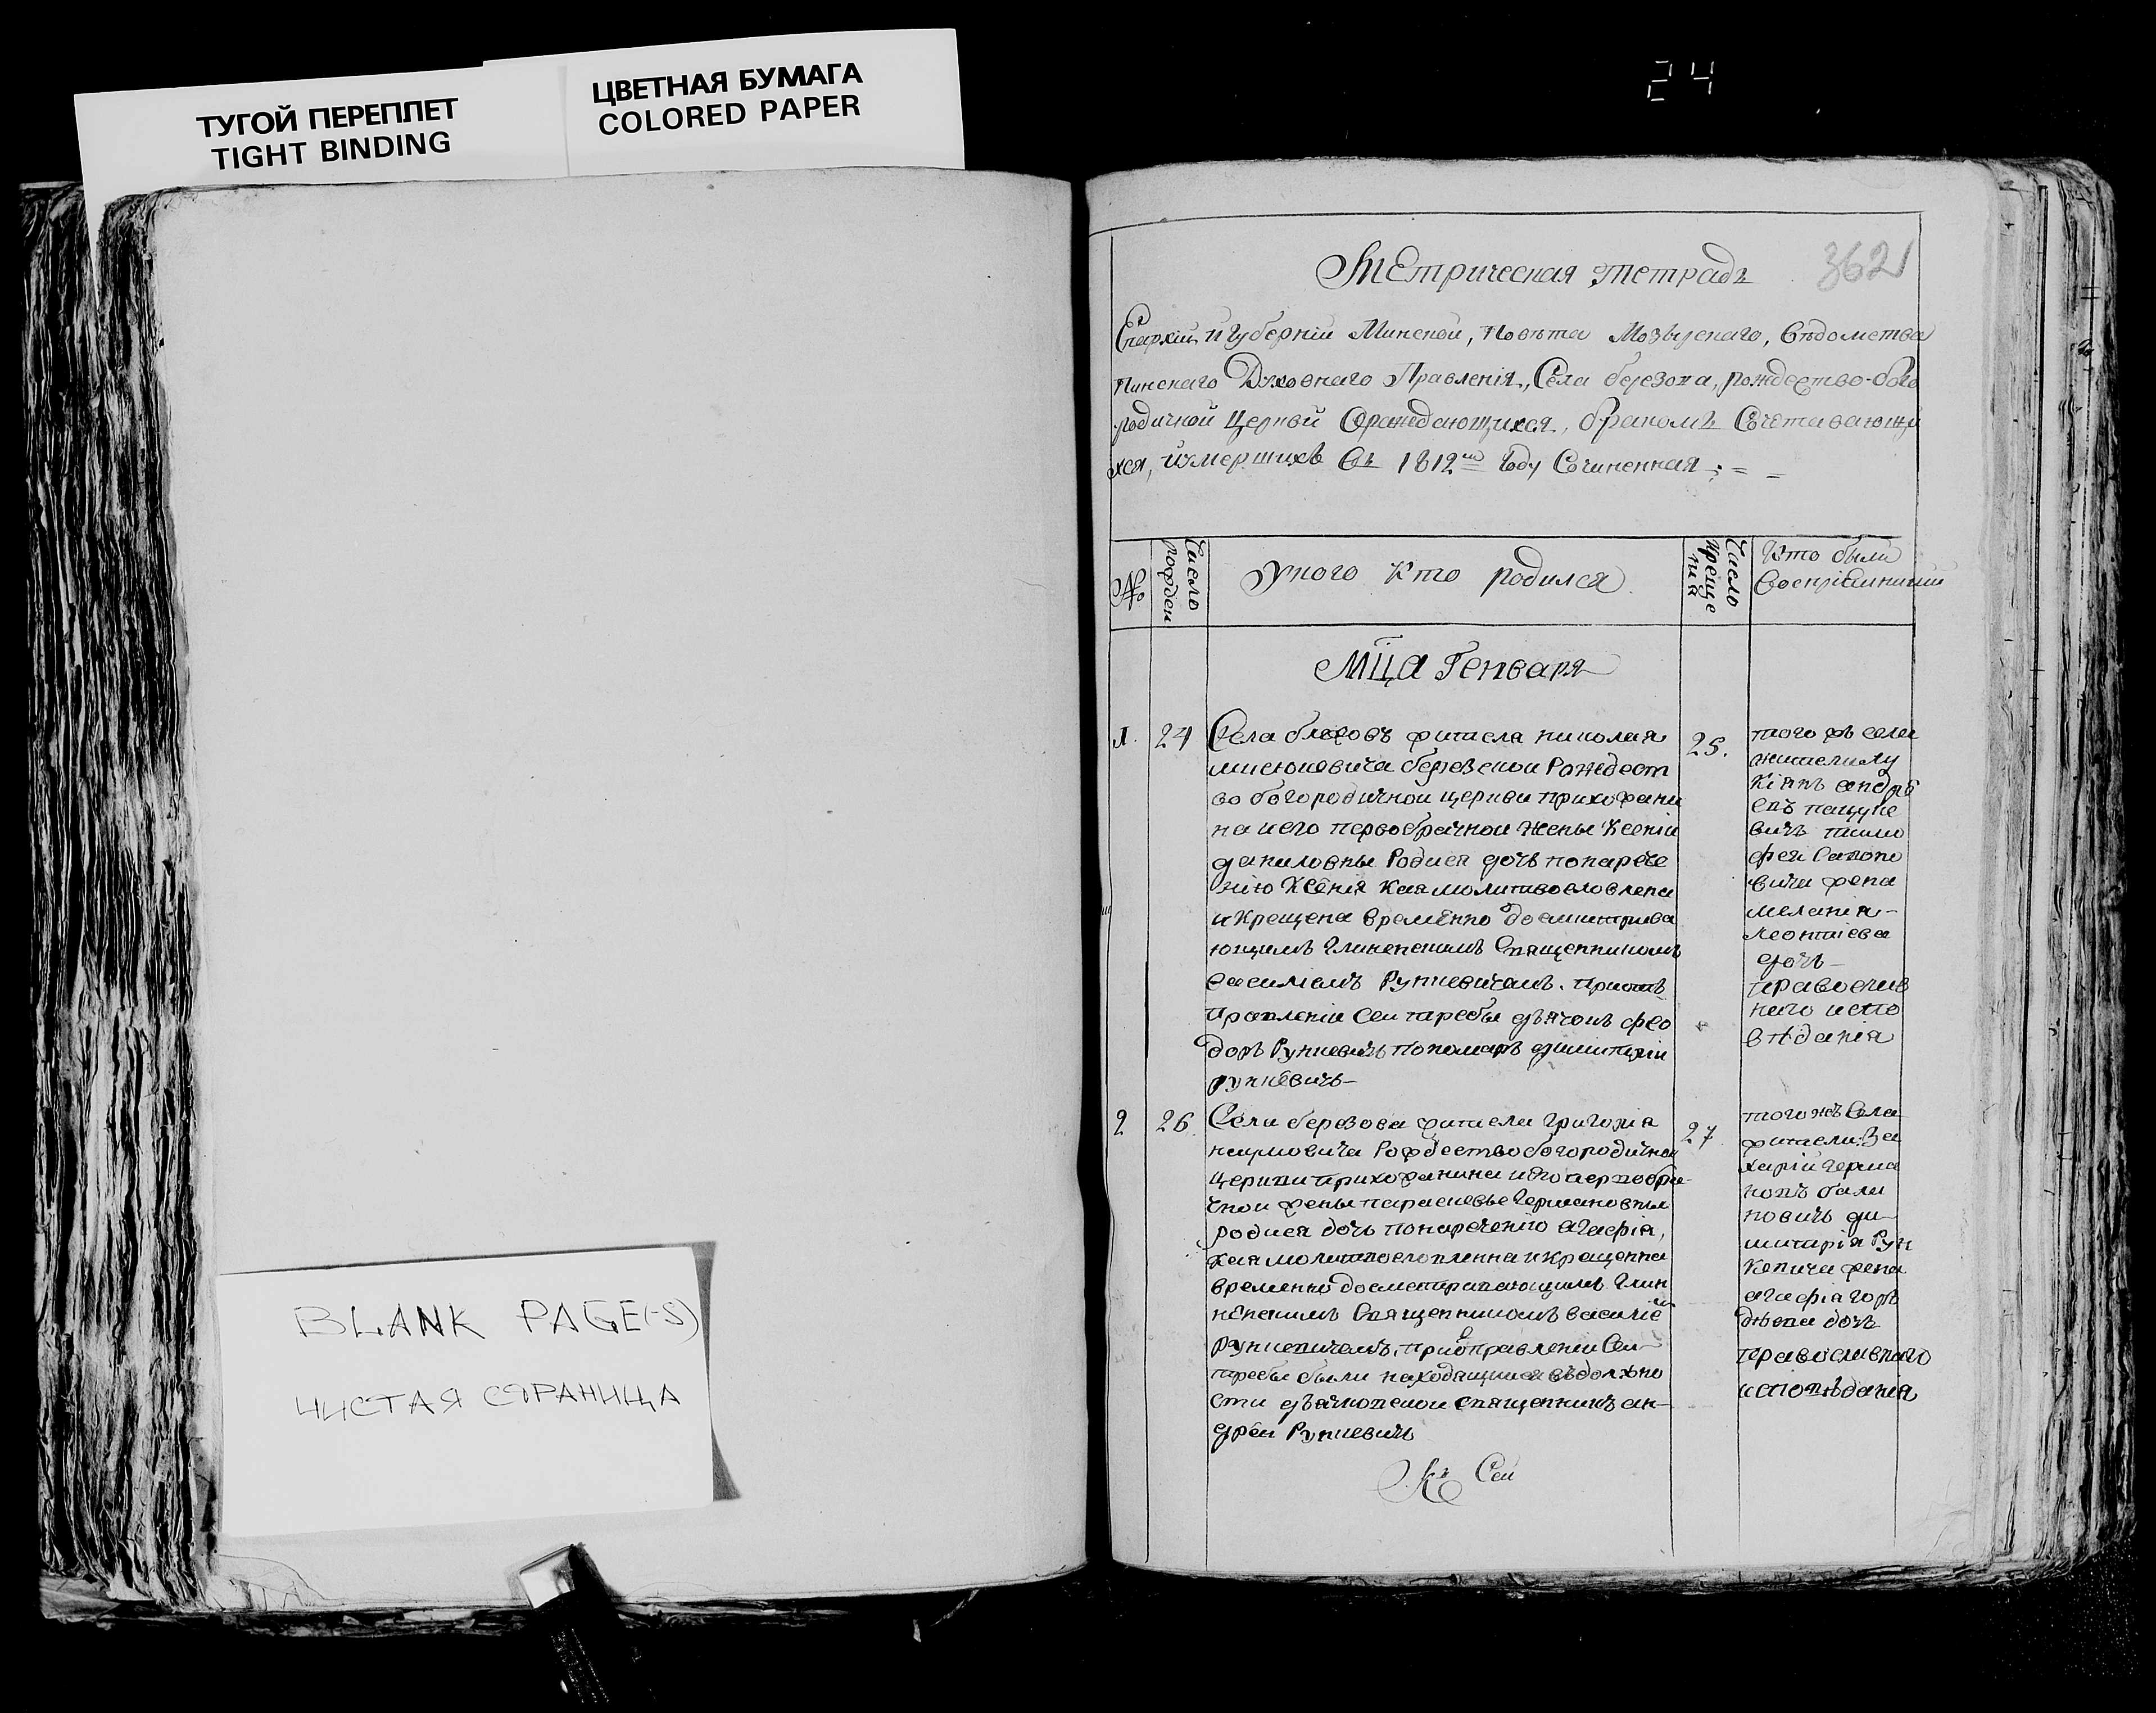 ТУГОЙ ПЕРЕПЛЕТ
TIGHT BINDING
ЦВЕТНАЯ БУМАГА
COLORED PAPER
24
BLANK PAGE(-S)
ЧИСТАЯ СТРАНИЦА
362
Метрическая тетрадь
Епархіи и Губерніи Минской, Повѣта Мозырскаго, вѣдомства
Пинскаго Духовнаго Правленія, Села березова, рождество-бого
родичной Церкви Ораждающихся, бракомъ Сочетавающи
хся, и умершихъ въ 1812 году Сочиненная
№
Число рожден
У кого кто родился
Число креще нія
Кто были
Воспріемники
Мца Генваря
1. 24
Села жителя николая
мисюкевича березской Рождест
во богородичной церкви прихожани
на и его первобрачной жены Ксеніи
даниловны Родися дочь по нарече
нію Ксенія кая молитвословлена
и крещена временно досматрива
ющимъ Глинскимъ Священникомъ
василіемъ Рункевичемъ. При
правленіи сей требы дьячокъ фео
доръ Рункевичъ пономаръ димитрій
рункевичъ
25.
того жъ села
жители лу
кіянъ андре
евъ
вичъ тимо
фея
вича жена
меланія
леонтіева
дочь
православ
наго испо
вѣданія
2 26
Села березова жителя григорія
наумовича Рождество богородичной
церкви прихожанина и его первобра
чной жены параскевье Германовны
родися дочь по наречению агафія,
кая молитвословленна и крещенна
временно досматривающимъ Глин
нскимъ Священникомъ василіе
Рункевичемъ, при отправленіи Сей
требы были находящийся въ должно
сти дьячковской священникъ ан
дрей Рункевичъ
27
того жъ Села
жители: За
харій Герма
новъ бали
новичъ ди
митрія Рун
кевича жена
агафія горъ
дѣева дочь
православнаго
исповѣданія
Къ Сей